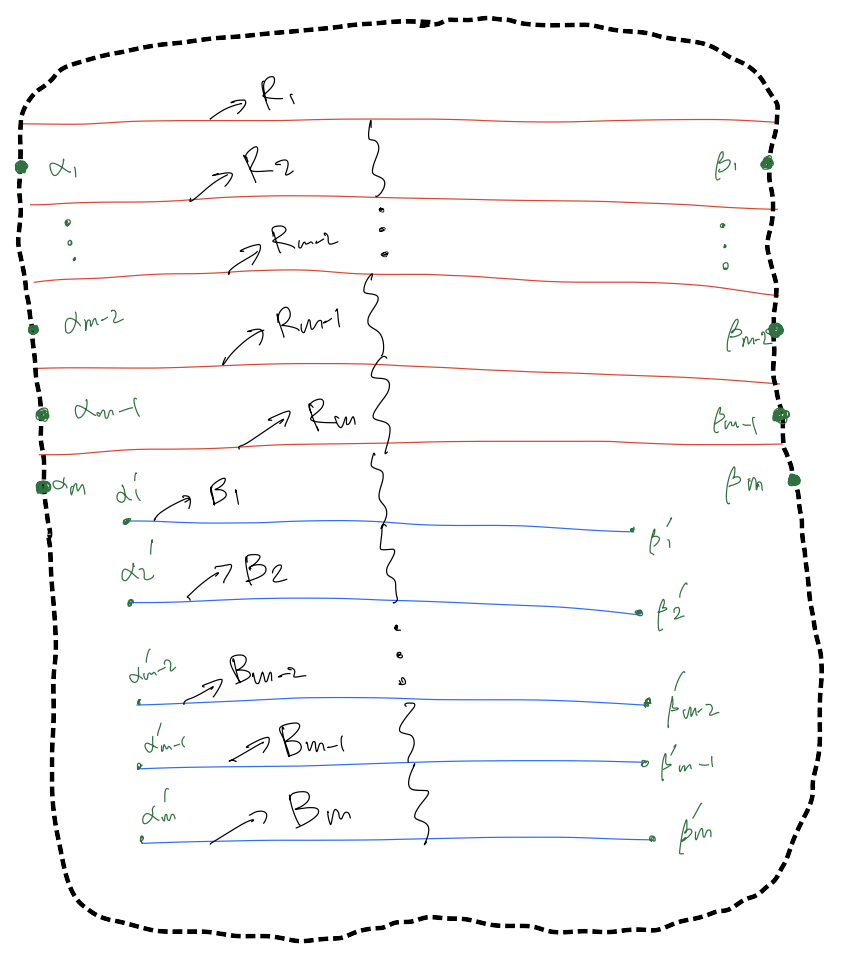 R1
α1 R2 β1
Rm-2
αm-2 Rm-1 βm-2
αm-1 Rm βm-1
αm α'1 B1 βm
β'1
α'2 B2 β'2
α'm-2 Bm-2 β'm-2
α'm-1 Bm-1 β'm-1
α'm Bm β'm